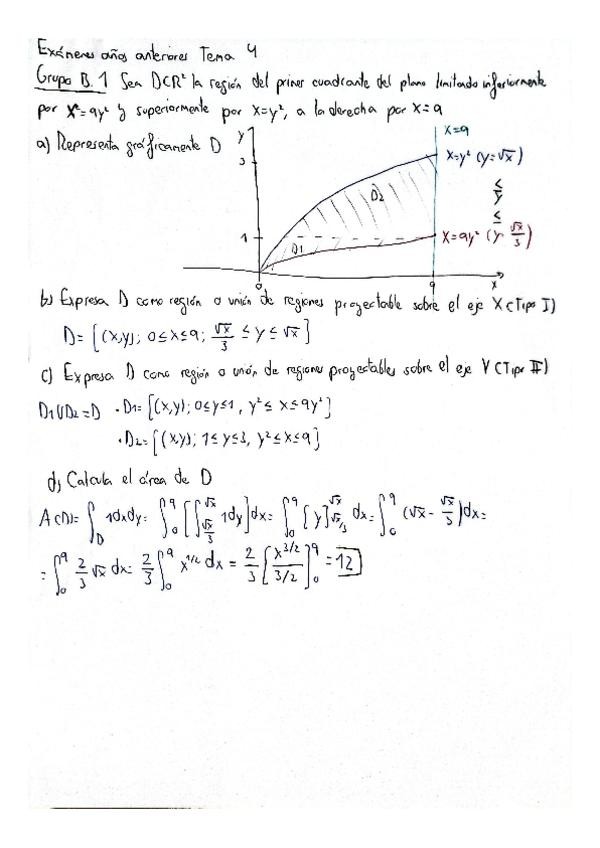 Exámenes años anteriores Tema 4
Grupo B.1 Sea D⊂R² la región del primer cuadrante del plano limitado inferiormente
por x=9y² y superiormente por x=y², a la derecha por x=9
a) Representa gráficamente D
y
3
1
0
9
x
D2
D1
x=9
x=y² (y=√x)
≤ y ≤
x=9y² (y √x/3)
b) Expresa D como región o unión de regiones proyectable sobre el eje X (Tipo I)
D= [(x,y); 0≤x≤9; √x/3 ≤ y ≤ √x]
c) Expresa D como región o unión de regiones proyectables sobre el eje Y (Tipo II)
D1UD2=D · D1= [(x,y); 0≤y≤1, y²≤ x≤9y²]
· D2= [(x,y); 1≤y≤3, y²≤x≤9]
d) Calcula el área de D
A(D)= ∫_D 1dxdy= ∫_0^9 [∫_{√x/3}^{√x} 1dy]dx= ∫_0^9 [y]_{√x/3}^{√x} dx= ∫_0^9 (√x - √x/3)dx=
= ∫_0^9 2/3 √x dx= 2/3 ∫_0^9 x^{1/2} dx = 2/3 [x^{3/2}/3/2]_0^9 = 12